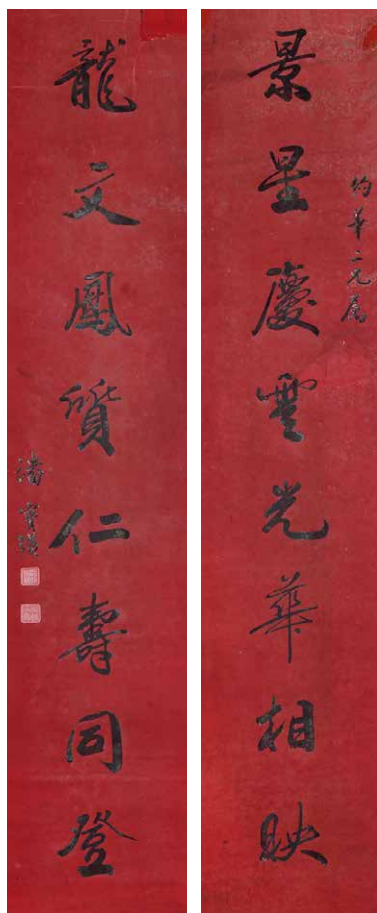 景星慶雲光華相映
約華二兄屬
龍文鳳質仁壽同登
潘寶璜